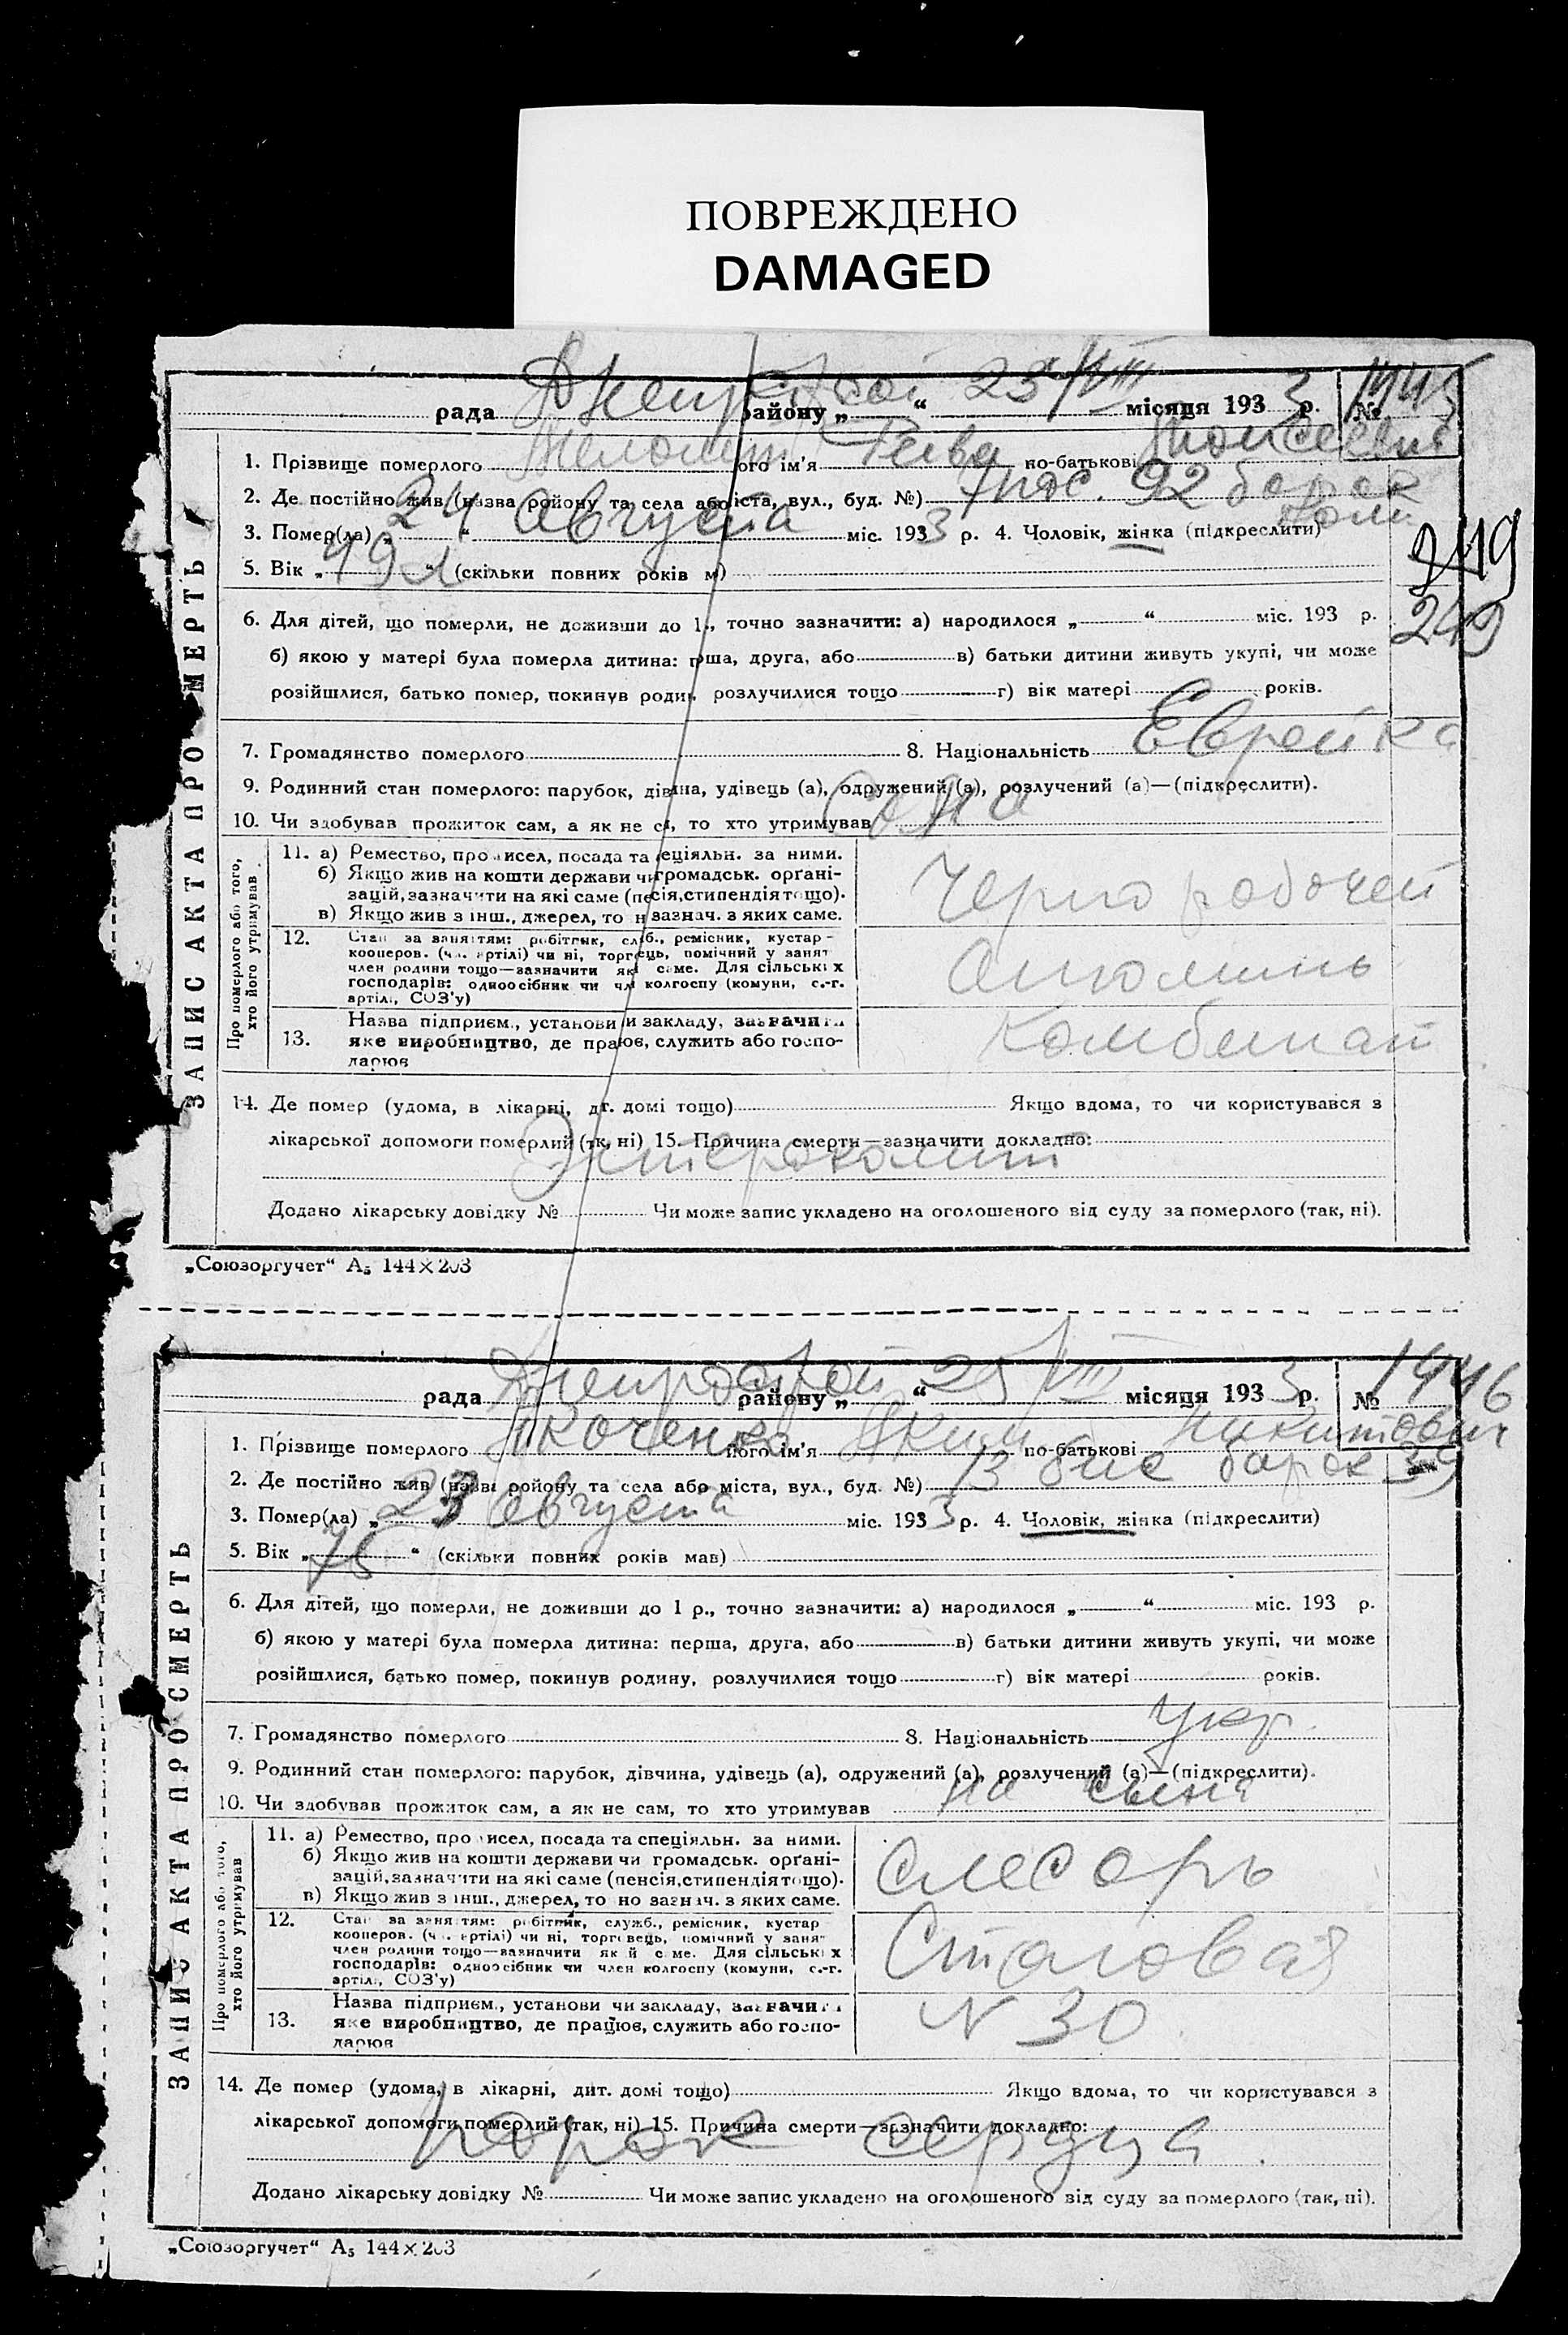 ПОВРЕЖДЕНО
DAMAGED
рада Днепрострой району „ “ 25/VIII місяця 193 3 р. № 1445
1. Прізвище померлого ого ім'я по-батькові
2. Де постійно жив (назва ройону та села або іста, вул., буд. №) 7 пос. 92 барак
3. Помер(ла) „ 24 “ Августа міс. 193 3 р. 4. Чоловік, жінка (підкреслити)
5. Вік „ 19 л “ (скільки повних років м)
249
249
6. Для дітей, що померли, не доживши до 1 ., точно зазначити: а) народилося „ “ міс. 193 р.
б) якою у матері була померла дитина: рша, друга, або в) батьки дитини живуть укупі, чи може
розійшлися, батько помер, покинув родин розлучилися тощо г) вік матері років.
7. Громадянство померлого 8. Національність Еврейка
9. Родинний стан померлого: парубок, дівина, удівець (а), одружений (а), розлучений (а)—(підкреслити).
10. Чи здобував прожиток сам, а як не ся, то хто утримував Сама
Про померлого або того, хто його утримував
11. а) Ремество, промисел, посада та еціяльн. за ними.
б) Якщо жив на кошти держави чи громадськ. орґані-
зацій, зазначити на які саме (песія, стипендія тощо).
в) Якщо жив з інш., джерел, то н зазнач. з яких саме.
Черно рабочей
12. Стан за заняттям: робітник, слб., ремісник, кустар-
кооперов. (чл. артілі) чи ні, торгець, помічний у занят
член родини тощо—зазначити які саме. Для сільських
господарів: одноосібник чи чл колгоспу (комуни, с.-г.
артілі, СОЗ'у)
Алюминь
13. Назва підприєм., установи и закладу, зазначити
яке виробництво, де праює, служить або госпо-
дарює
Комбинат
14. Де помер (удома, в лікарні, дт. домі тощо) Якщо вдома, то чи користувався з
лікарської допомоги померлий (тк, ні) 15. Причина смерти—зазначити докладно:
Энтероколит
Додано лікарську довідку № Чи може запис укладено на оголошеного від суду за померлого (так, ні).
ЗАПИС АКТА ПРО МЕРТЬ
„Союзоргучет“ А₅ 144×203
рада Днепрострой району „ “ 25/VIII місяця 193 3 р. № 1446
1. Прізвище померлого Ткоченко його ім'я Яким по-батькові Никитович
2. Де постійно жив (назва ройону та села або міста, вул., буд. №) 13 барак 39
3. Помер(ла) „ 23 Августа міс. 193 3 р. 4. Чоловік, жінка (підкреслити)
5. Вік „ 75 “ (скільки повних років мав)
6. Для дітей, що померли, не доживши до 1 р., точно зазначити: а) народилося „ “ міс. 193 р.
б) якою у матері була померла дитина: перша, друга, або в) батьки дитини живуть укупі, чи може
розійшлися, батько помер, покинув родину, розлучилися тощо г) вік матері років.
7. Громадянство померлого 8. Національність Укр.
9. Родинний стан померлого: парубок, дівчина, удівець (а), одружений (а), розлучений (а)—(підкреслити).
10. Чи здобував прожиток сам, а як не сам, то хто утримував на сына
Про померлого або того, хто його утримував
11. а) Ремество, промисел, посада та спеціяльн. за ними.
б) Якщо жив на кошти держави чи громадськ. орґані-
зацій, зазначити на які саме (пенсія, стипендія тощо).
в) Якщо жив з інш., джерел, то но зазнач. з яких саме.
Слесарь
12. Стан за заняттям: робітник, служб., ремісник, кустар
кооперов. (чл. артілі) чи ні, торговець, помічний у занят
член родини тощо—зазначити який саме. Для сільських
господарів: одноосібник чи член колгоспу (комуни, с.-г.
артілі, СОЗ'у)
Сталовая
13. Назва підприєм., установи чи закладу, зазначити
яке виробництво, де працює, служить або госпо-
дарює
N 30
14. Де помер (удома, в лікарні, дит. домі тощо) Якщо вдома, то чи користувався з
лікарської допомоги померлий (так, ні) 15. Причина смерти—зазначити докладно:
порок сердца.
Додано лікарську довідку № Чи може запис укладено на оголошеного від суду за померлого (так, ні).
ЗАПИС АКТА ПРО СМЕРТЬ
„Союзоргучет“ А₅ 144×203